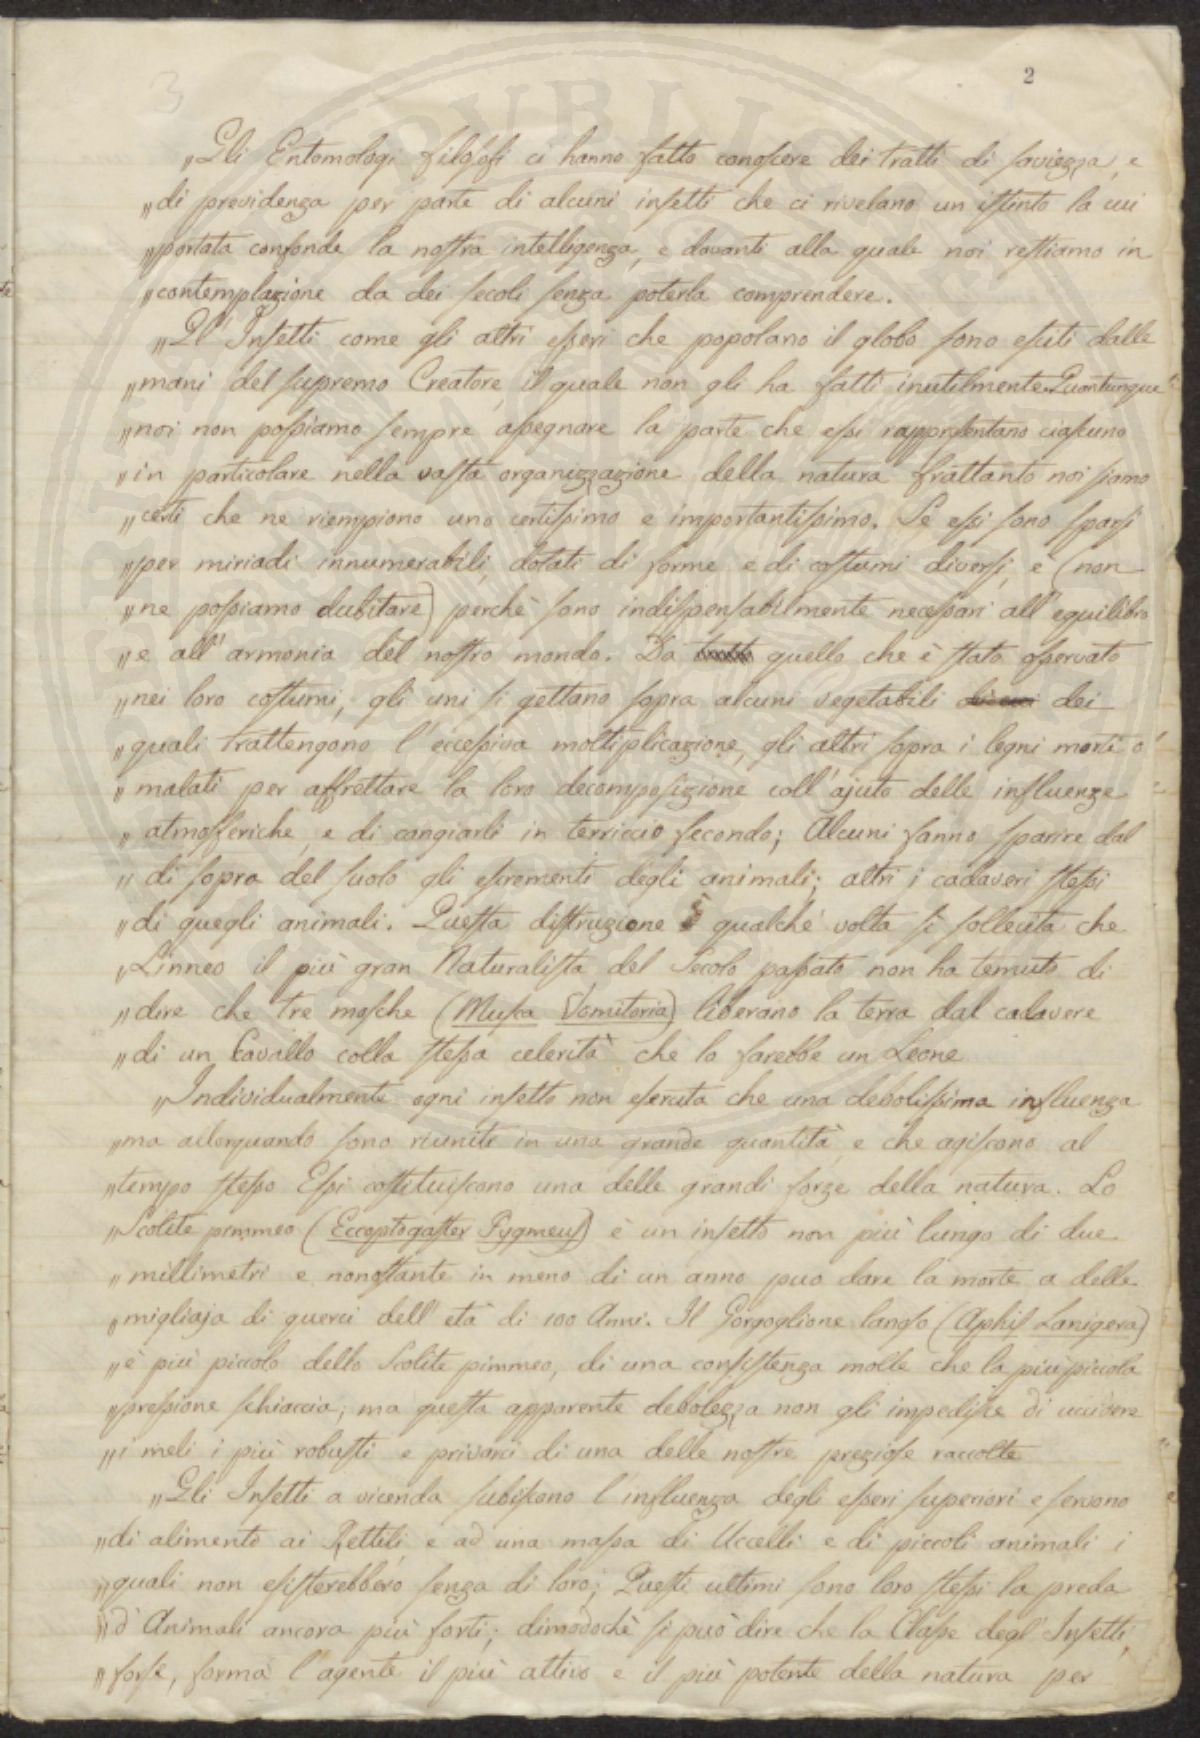 2
3
„Gli Entomologi filosofi ci hanno fatto conoscere dei tratti di saviezza, e
„di previdenza per parte di alcuni insetti che ci rivelano un istinto la cui
„portata confonde la nostra intelligenza, e davanti alla quale noi restiamo in
„contemplazione da dei secoli senza poterla comprendere.
„Gl' Insetti come gli altri esseri che popolano il globo sono esciti dalle
„mani del supremo Creatore, il quale non gli ha fatti inutilmente. Quantunque
„noi non possiamo sempre assegnare la parte che essi rappresentano ciascuno
„in particolare nella vasta organizzazione della natura frattanto noi siamo
„certi che ne riempiono uno certissimo e importantissimo. Se essi sono sparsi
„per miriadi innumerabili, dotati di forme e di costumi diversi, e (non
„ne possiamo dubitare) perchè sono indispensabilmente necessari all' equilibro
„e all' armonia del nostro mondo. Da quello che è stato osservato
„nei loro costumi, gli uni si gettano sopra alcuni vegetabili dei
„quali trattengono l' eccessiva moltiplicazione, gli altri sopra i legni morti o
„malati per affrettare la loro decomposizione coll' ajuto delle influenze
„atmosferiche, e di cangiarli in terriccio fecondo; Alcuni fanno sparire dal
„di sopra del suolo gli escrementi degli animali; altri i cadaveri stessi
„di quegli animali. Questa distruzione è qualche volta sì sollecita che
„Linneo il più gran Naturalista del Secolo passato non ha temuto di
„dire che tre mosche (Musca Vomitoria) liberano la terra dal cadavere
„di un Cavallo colla stessa celerità che lo farebbe un Leone
„Individualmente ogni insetto non esercita che una debolissima influenza
„ma allorquando sono riuniti in una grande quantità e che agiscono al
„tempo stesso Essi costituiscono una delle grandi forze della natura. Lo
„Scolite pimmeo (Eccoptogaster Pygmeus) è un insetto non più lungo di due
„millimetri e nonostante in meno di un anno può dare la morte a delle
„migliaja di querci dell' età di 100 Anni. Il Gorgoglione lanoso (Aphis Lanigera)
„è più piccolo dello Scolite pimmeo, di una consistenza molle che la più piccola
„pressione schiaccia; ma questa apparente debolezza non gli impedisce di uccidere
„i meli i più robusti e privarci di una delle nostre preziose raccolte
„Gli Insetti a vicenda subiscono l' influenza degli esseri superiori e servono
„di alimento ai Rettili e ad una massa di Uccelli e di piccoli animali i
„quali non esisterebbero senza di loro; Questi ultimi sono loro stessi la preda
„d' Animali ancora più forti; dimodochè si può dire che la Classe degl' Insetti,
„forse, forma l' agente il più attivo e il più potente della natura per